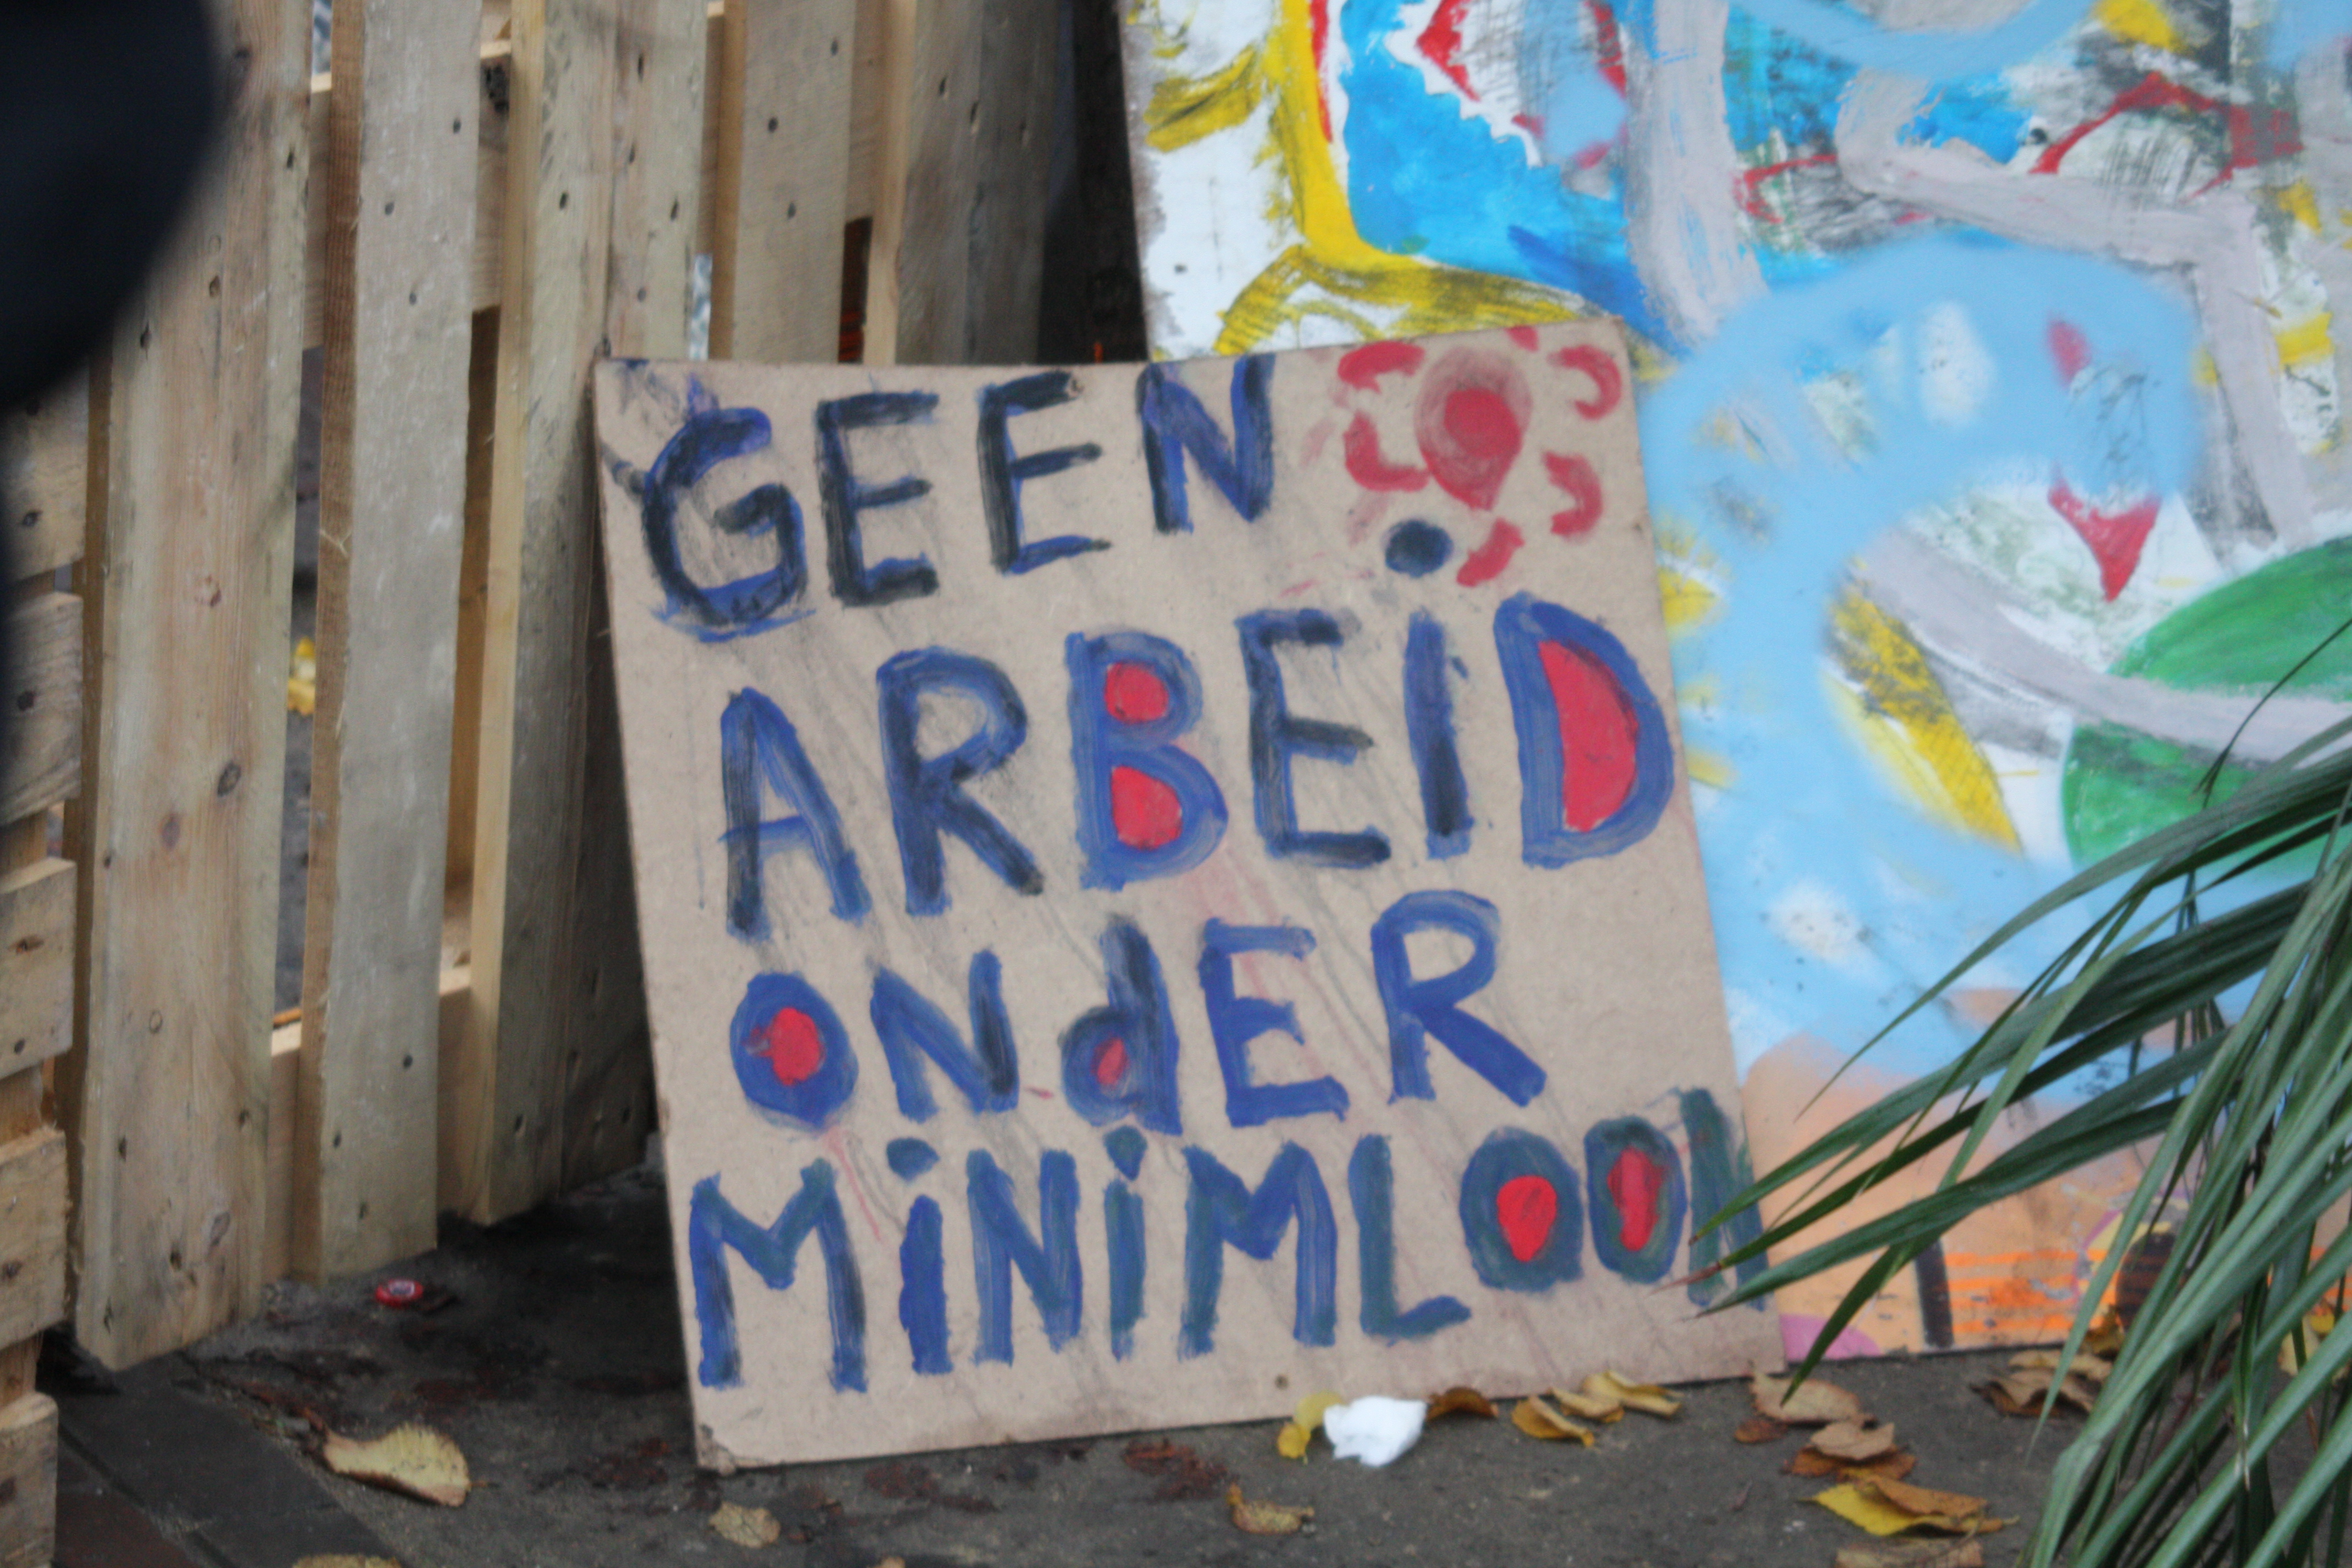 GEEN
ARBEiD
ONdER
MiNiMLOON